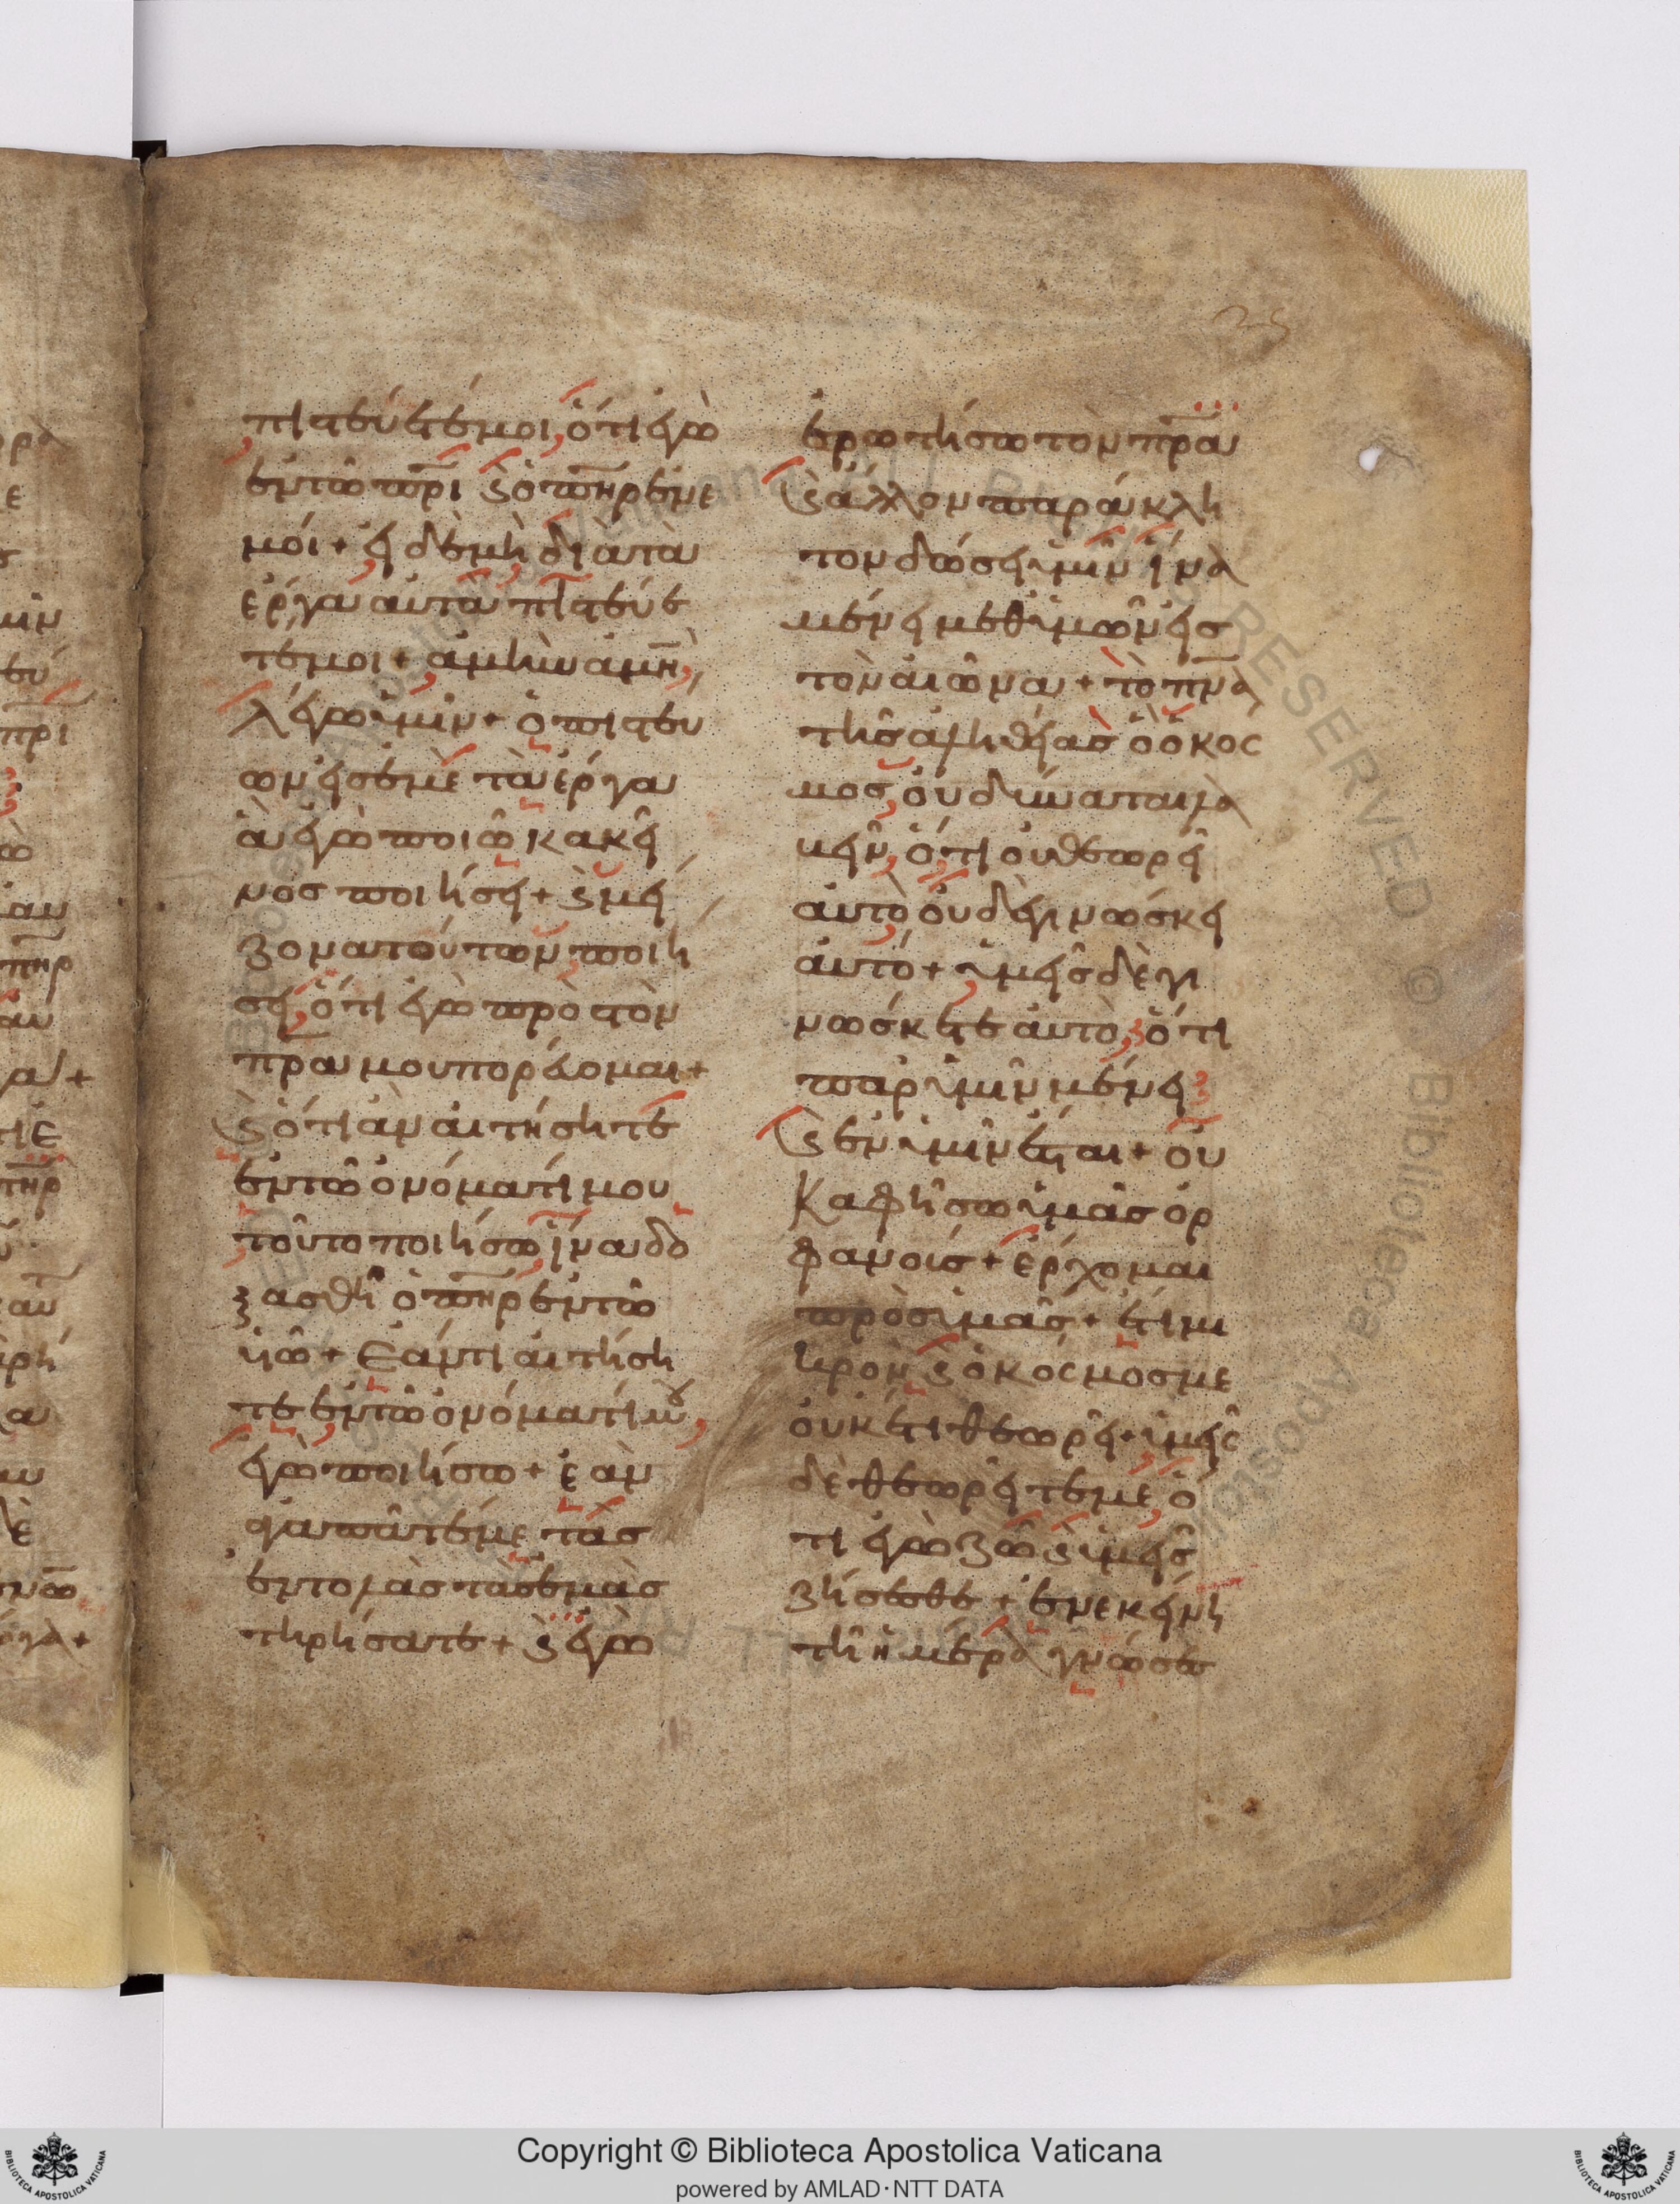 πιστεύετέ μοι, ὅτι ἐγὼ
ἐν τῶ π̅ρ̅ι ϗ ὁ π̅η̅ρ ἐν ε
μοί + εἰ δὲ μὴ διὰ τὰ
ἔργα αὐτὰ πιστεύε
τέ μοι + ἀμὴν ἀμὴ̅
λέγω ὑμῖν + ὁ πιστευ
ων εἰς ἐμὲ τὰ ἔργα
ἃ ἐγὼ ποιῶ κακεῖ
νος ποιήσει + ϗ μεί
ζονα τούτων ποιή
σει, ὅτι ἐγὼ πρὸς τὸν
π̅ρ̅α μου πορεύομαι +
ϗ ὅτι ἂν αἰτήσητε
ἐν τῶ ὀνόματί μου
τοῦτο ποιήσω, ἵνα δο
ξασθῆ ὁ π̅η̅ρ ἐν τῶ
υἱῶ + Ἐάν τι αἰτήση
τε ἐν τῶ ὀνόματί μου,
ἐγὼ ποιήσω + ἐὰν
ἀγαπᾶτέ με τὰς
ἐντολὰς τὰς ἐμὰς
τηρήσατε + ϗ ἐγὼ
ἐρωτήσω τὸν π̅ρ̅α
ϗ ἄλλον παράκλη
τον δώσει ὑμῖν ἵνα
μένει μεθ ὑμῶν εἰς
τὸν αἰῶνα + τὸ π̅ν̅α
τῆς ἀληθείας ὃ ὁ κόσ
μος οὐ δύναται λα
βεῖν, ὅτι οὐ θεωρεῖ
αὐτὸ οὐδὲ γινώσκει
αὐτό + ὑμεῖς δὲ γι
νώσκετε αὐτὸ, ὅτι
παρ ὑμῖν μένει
ϗ ἐν ὑμῖν ἔσται + οὐ
κ αφήσω ὑμᾶς ὀρ
φανούς + ἔρχομαι
πρὸς ὑμᾶς + ἔτι μι
κρὸν ϗ ὁ κόσμος με
οὐκέτι θεωρεῖ + ὑμεῖς
δὲ θεωρεῖτέ με, ὅ
τι ἐγὼ ζῶ ϗ ὑμεῖς
ζήσεσθε + ἐν εκείνη
τῆ ἡμέρα γνώσε